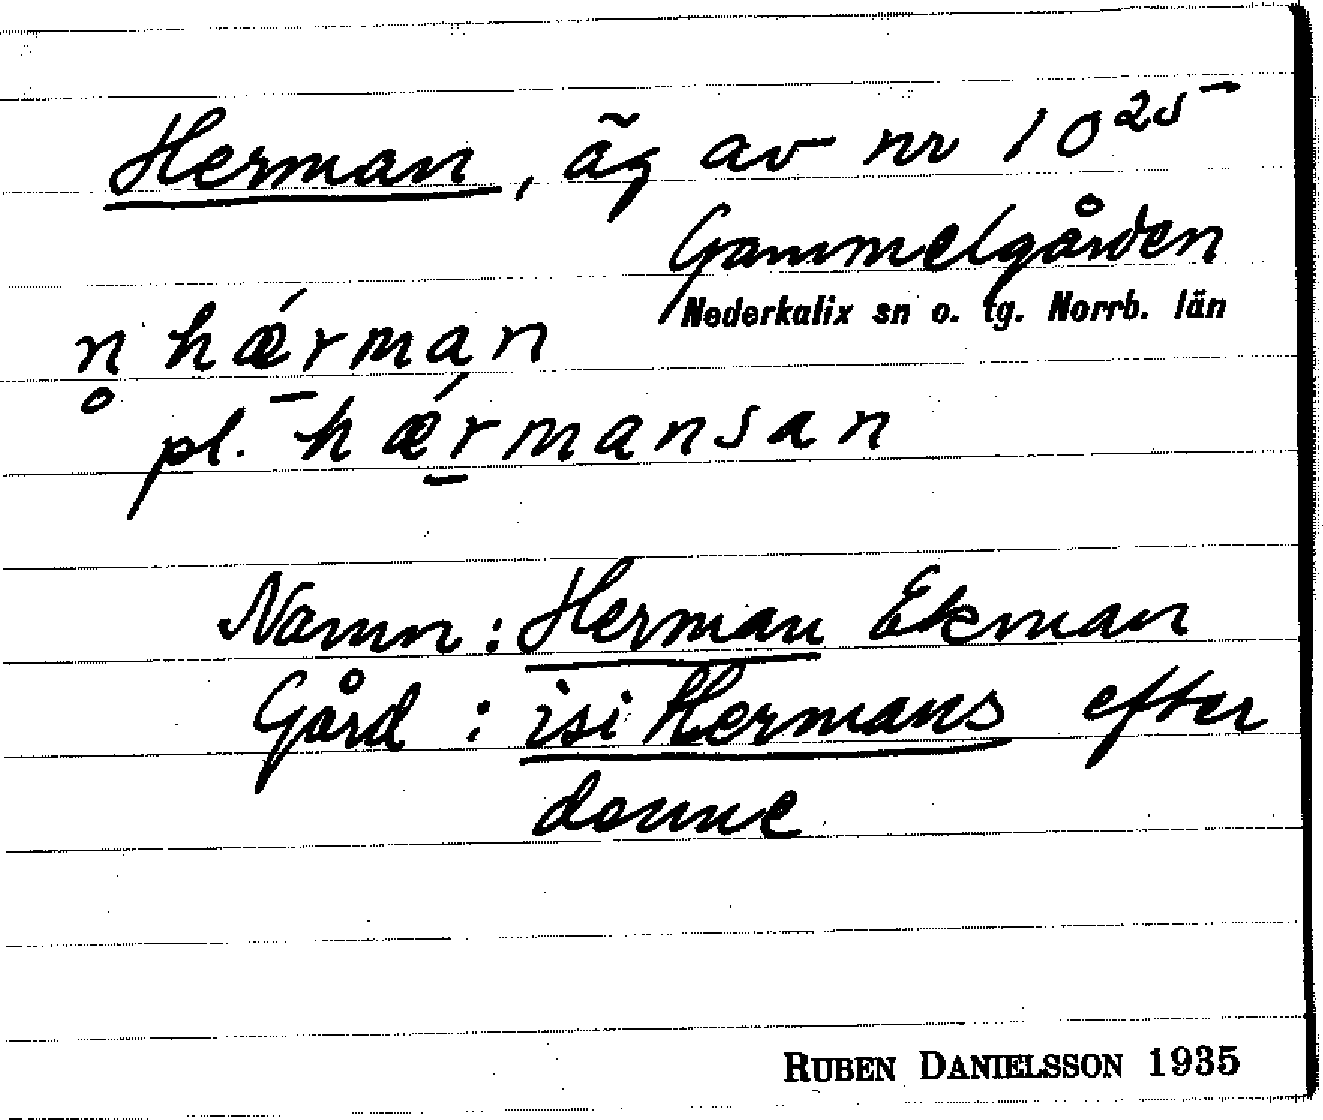 Herman, äg av nr 10²⁵
Gammelgården
Nederkalix sn o. tg. Norrb. län
n̥ hǽrman
pl. hǽrmansan
Namn: Herman Ekman
Gård: isi Hermans efter
denne
RUBEN DANIELSSON 1935